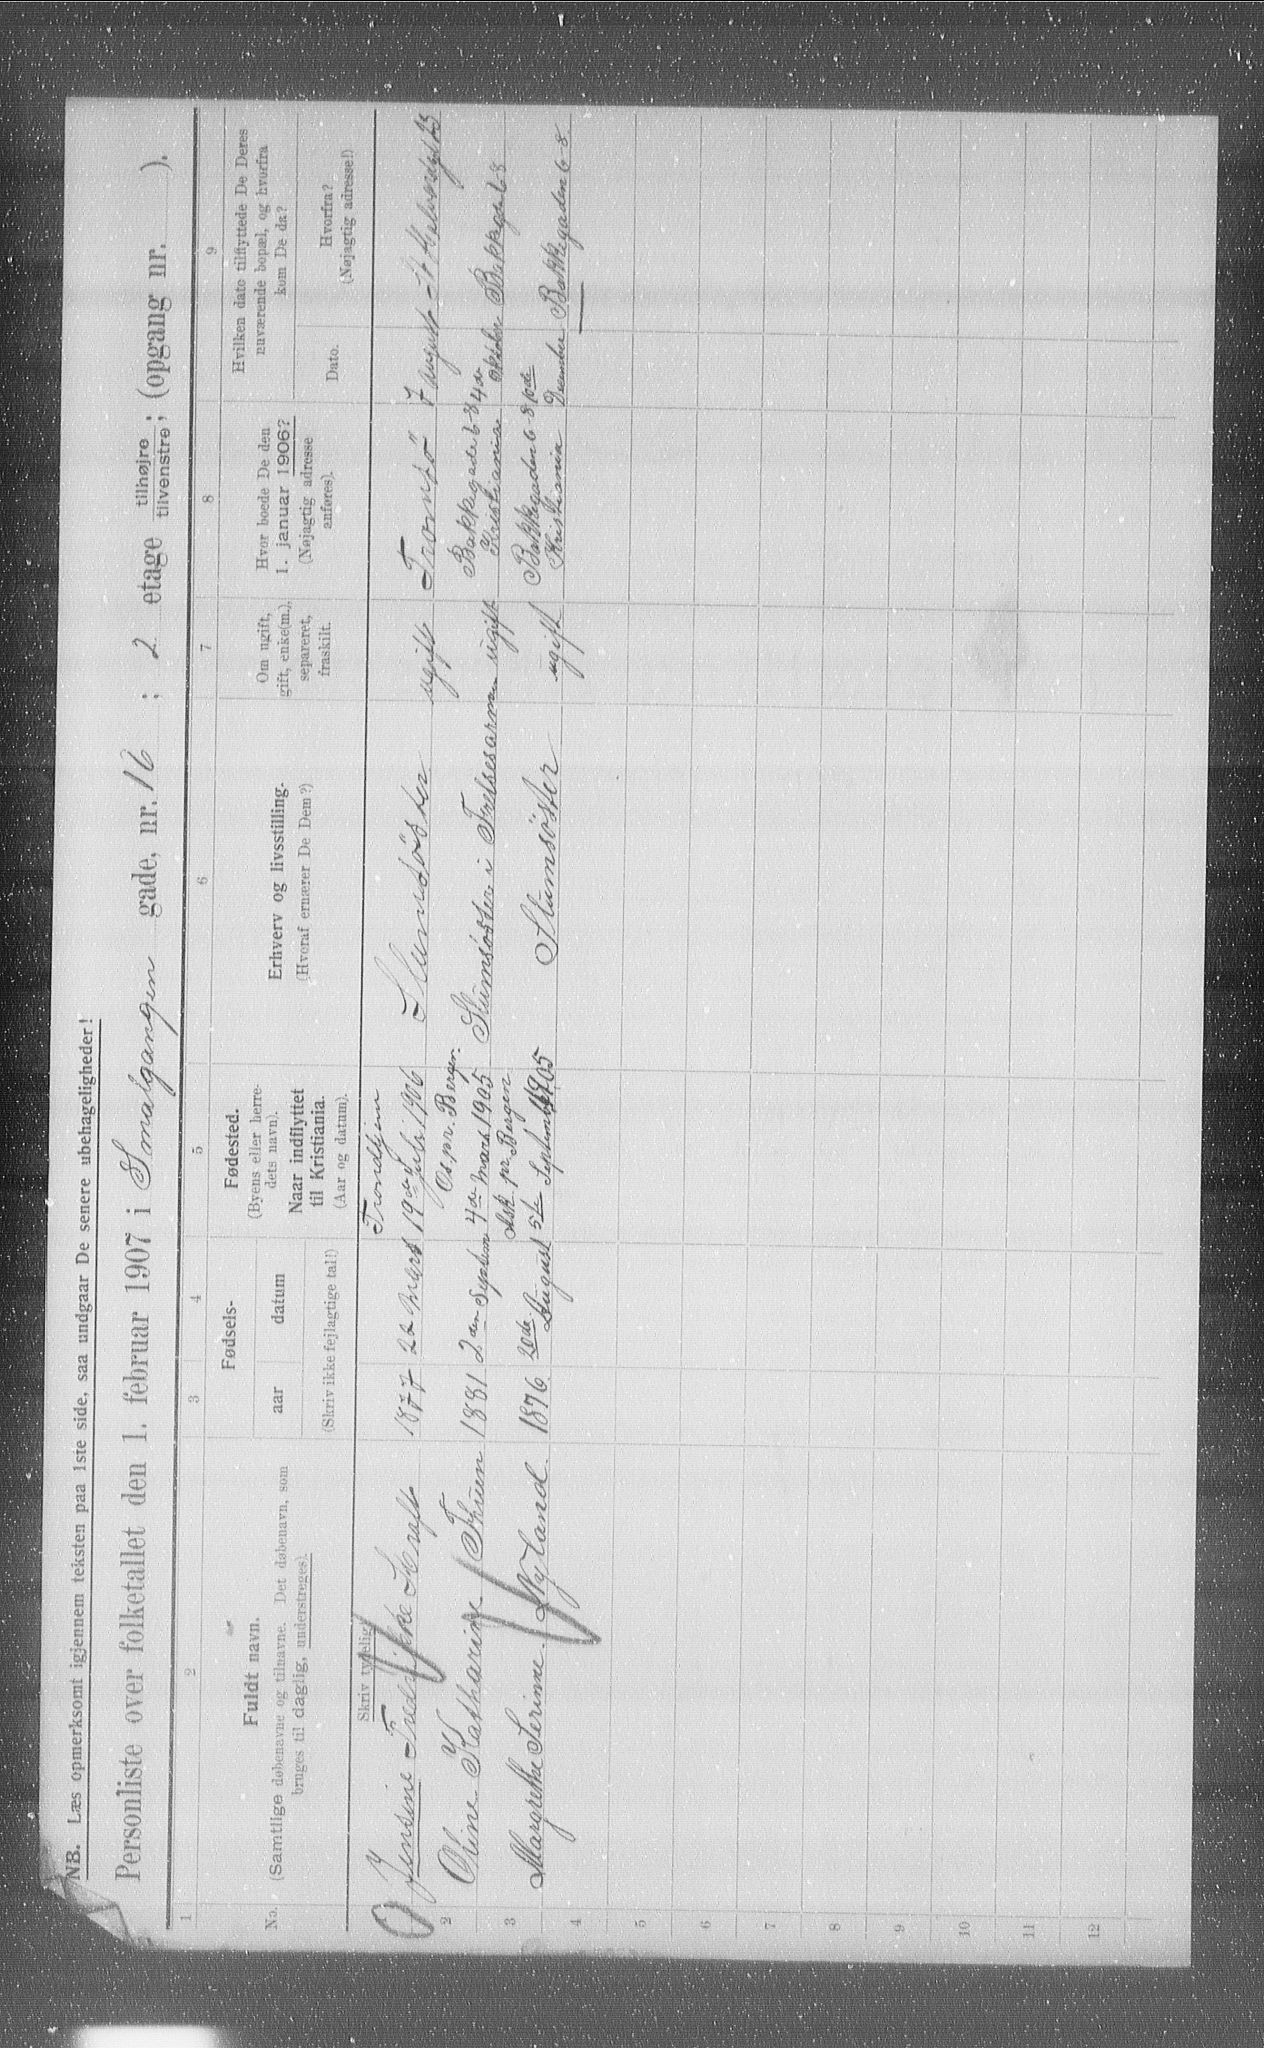 NB. Læs opmerksomt igjennem teksten paa 1ste side, saa undgaar De senere ubehageligheder!
Personliste over folketallet den 1. februar 1907 i Smalgangen gade, nr. 16 ; 2 etage tilhøjre tilvenstre ; (opgang nr. ).
1 2 3 4 5 6 7 8 9
No.
Fuldt navn.
(Samtlige døbenavne og tilnavne. Det døbenavn, som
bruges til daglig, understreges).
Skriv tydelig!
Fødsels-
aar datum
(Skriv ikke fejlagtige tal!)
Fødested.
(Byens eller herre-
dets navn).
Naar indflyttet
til Kristiania.
(Aar og datum).
Erhverv og livsstilling.
(Hvoraf ernærer De Dem?)
Om ugift,
gift, enke(m.),
separeret,
fraskilt.
Hvor boede De den
1. januar 1906?
(Nøjagtig adresse
anføres).
Hvilken dato tilflyttede De Deres
nuværende bopæl, og hvorfra
kom De da?
Dato.
Hvorfra?
(Nøjagtig adresse!)
Trondhjem
Jensine Fredrikke Kraft 1877 22 Mars 19de Juli 1906 Slumsöster ugift Tromsö 7 August St Halvardsgd 23
Os pr. Bergen Bakkegade 6-8 4de
2 Oline Katharine Thuen 1881 2den Septem 4de Mars 1905 Slumsöster i Frelsesarmeen ugift Kristiania Oktober Bakkegade 6-8
Ask pr. Bergen Bakkegaden 6-8 10de
3 Margrethe Serinne Nyland 1876 20de August 5te September 1905 Slumsöster ugift Kristiania December Bakkegaden 6-8
4
5
6
7
8
9
10
11
12